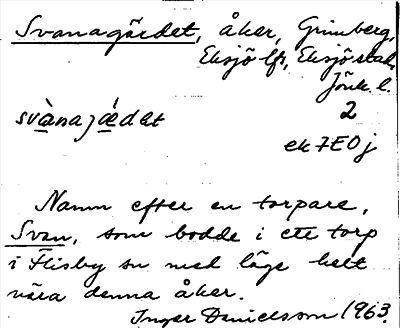 Svanagärdet, åker, Grimberg,
Eksjö lfs, Eksjö stad,
Jönk. l.
svà̱najǽ̱dat
2
ek 7E0j
Namn efter en torpare,
Svan, som bodde i ett torp
i Flisby sn med läge helt
nära denna åker.
Inger Danielsson 1963.